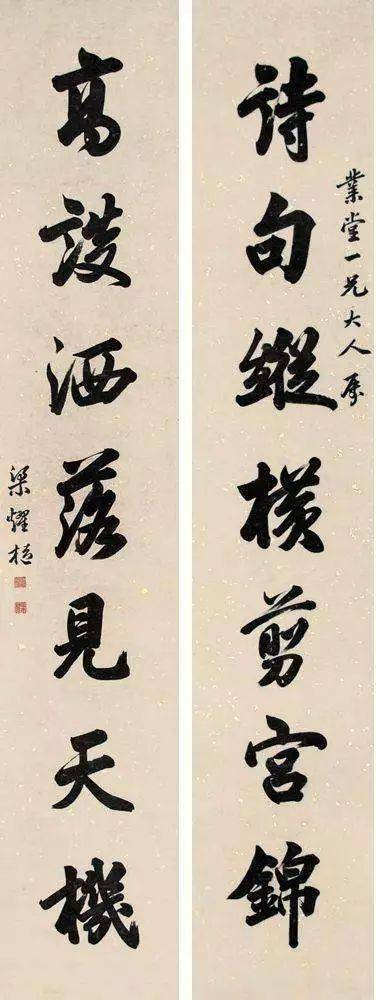 業堂一兄大人属
詩句縱橫剪宮錦
高談洒落見天機
梁燿樞